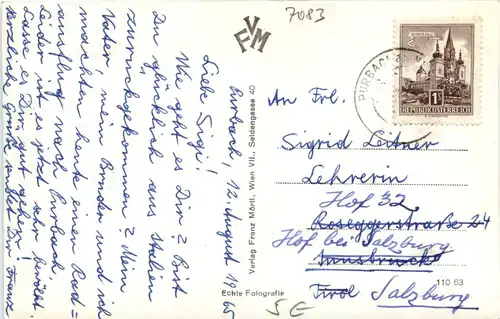 7083
VFM
Purbach, 12. August 1965
Liebe Sigi!
Wie geht es Dir? Bist
Du glücklich aus Italien
zurückgekommen? Mein
Vater, mein Bruder und ich
machten heute einen Rad=
ausflug nach Purbach.
Leider ist es jetzt sehr bewölkt.
Lasse es Dir gut gehen!
Herzliche Grüße sendet Dir Franz
Verlag Franz Mörtl, Wien VII., Seidengasse 40
Echte Fotografie
5E
110 63
MARIAZELL
1S
REPUBLIK ÖSTERREICH
PURBACH
An Frl.
Sigrid Leitner
Lehrerin
Hof 32
Roseggerstraße 24
Hof bei Salzburg
Innsbruck
Tirol Salzburg